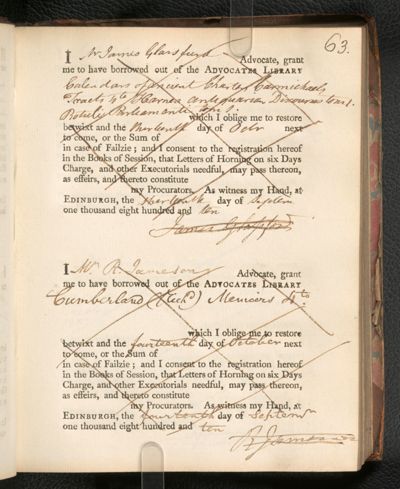 63.
I Mr James Glassfurd Advocate, grant
me to have borrowed out of the ADVOCATES LIBRARY
Calendars of ancient Charters Carmichaels
Tracts 4to Hearnes antiquarian Discourses vol 1.
which I oblige me to restore
betwixt and the thirteenth day of Octr next
to come, or the Sum of
in case of Failzie; and I consent to the registration hereof
in the Books of Session, that Letters of Horning on six Days
Charge, and other Executorials needful, may pass thereon,
as effeirs, and thereto constitute
my Procurators. As witness my Hand, at
EDINBURGH, the thirteenth day of Septem
one thousand eight hundred and ten
James Glassfurd
I Mr R. Jameson Advocate, grant
me to have borrowed out of the ADVOCATES LIBRARY
Cumberland (Richd) Memoirs 4to
which I oblige me to restore
betwixt and the fourteenth day of October next
to come, or the Sum of
in case of Failzie; and I consent to the registration hereof
in the Books of Session, that Letters of Horning on six Days
Charge, and other Executorials needful, may pass thereon,
as effeirs, and thereto constitute
my Procurators. As witness my Hand, at
EDINBURGH, the fourteenth day of Septemr
one thousand eight hundred and ten
R. Jameson